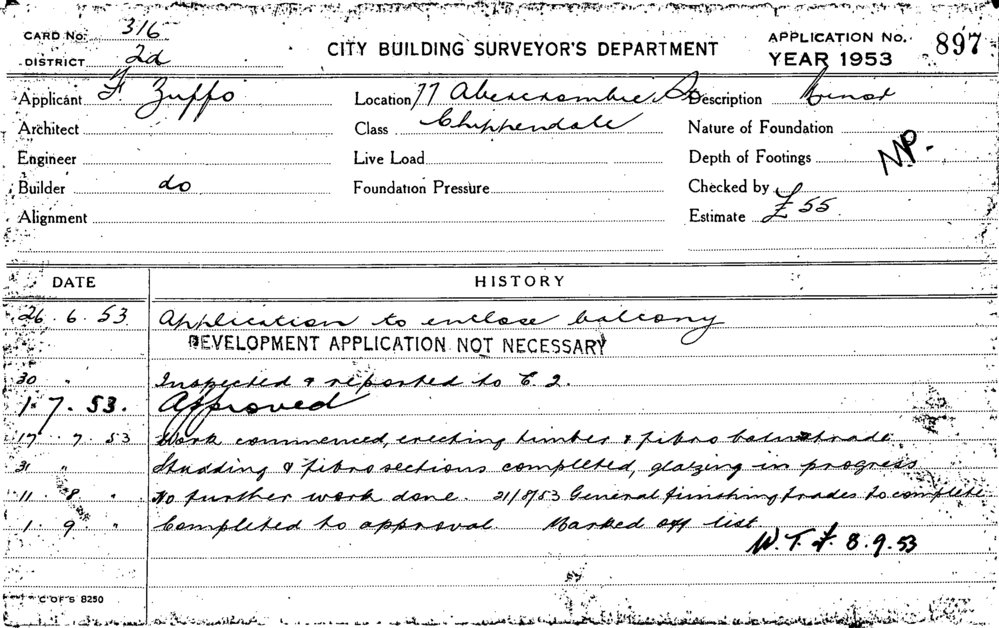 CARD No. 316
DISTRICT 2d
CITY BUILDING SURVEYOR'S DEPARTMENT
APPLICATION No. 897
YEAR 1953
Applicant F Zuffo Location 77 Abercrombie St Description Minor
Architect Class Chippendale Nature of Foundation
Engineer Live Load Depth of Footings
NP.
Builder do Foundation Pressure Checked by
Alignment Estimate £55
DATE HISTORY
26. 6. 53 Application to enclose balcony
DEVELOPMENT APPLICATION NOT NECESSARY
30 " Inspected & reported to C. 2.
1. 7. 53. Approved
17 7. 53 Work commenced, erecting timber & fibro balustrade
31 " Studding & fibro sections completed, glazing in progress
11. 8 " No further work done. 21/8/53 General finishing trades to complete
1. 9 " Completed to approval Marked off list
W.T.F. 8.9.53
C OF S 8250